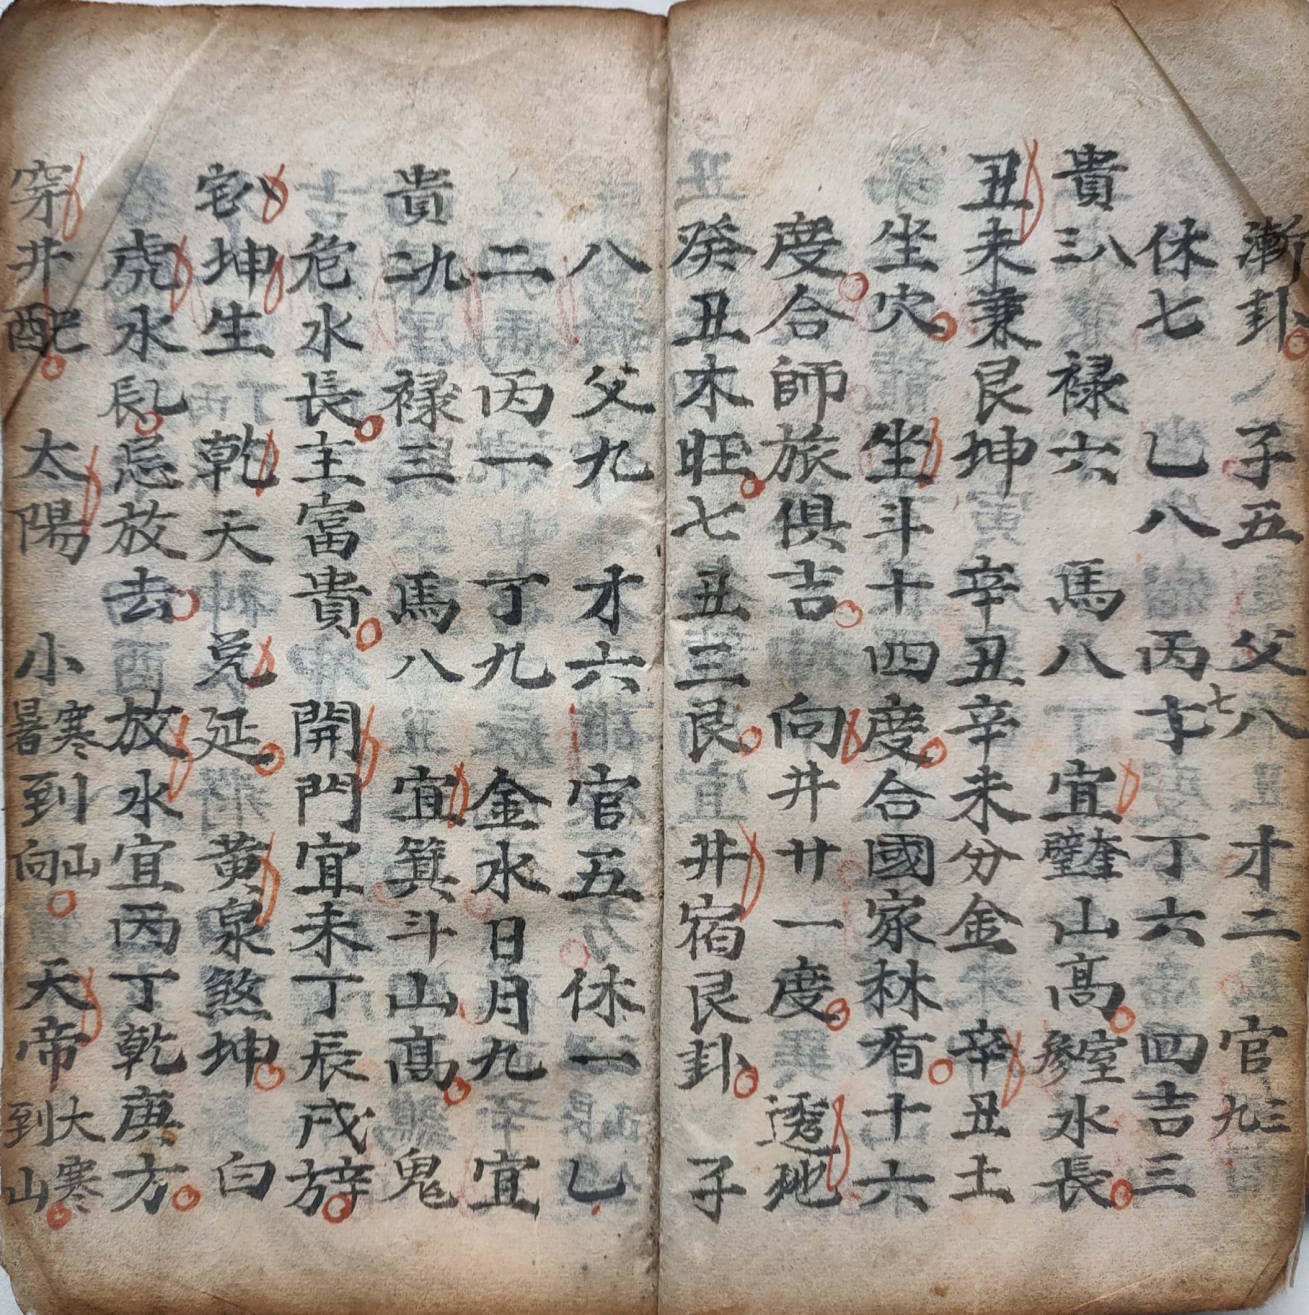 漸卦 子五 父八 才二 官三九
休七 乚八 丙七 丁六 四吉三
貴三八 禄六 馬八 宜壁奎山髙參室水長
丑未兼艮坤 辛丑辛未分金 辛丑土
坐穴 坐斗十四度合國家林看十六
度合師旅俱吉 向井廿一度 透地
癸丑木旺七丑三艮 井宿艮卦 子
八 父九 才六 官五 休一 乚
二 丙一 丁九 金水日月九宜
貴二九 禄三 馬八 宜箕斗山髙鬼
危水長主富貴 開門宜未丁辰戌辤
宅坤生 乾天 兑延 黄泉煞坤 白
虎水乚辰忌放去 放水宜丙丁乾庚方
穿井配 太陽 小寒暑到山向 天帝大寒到山